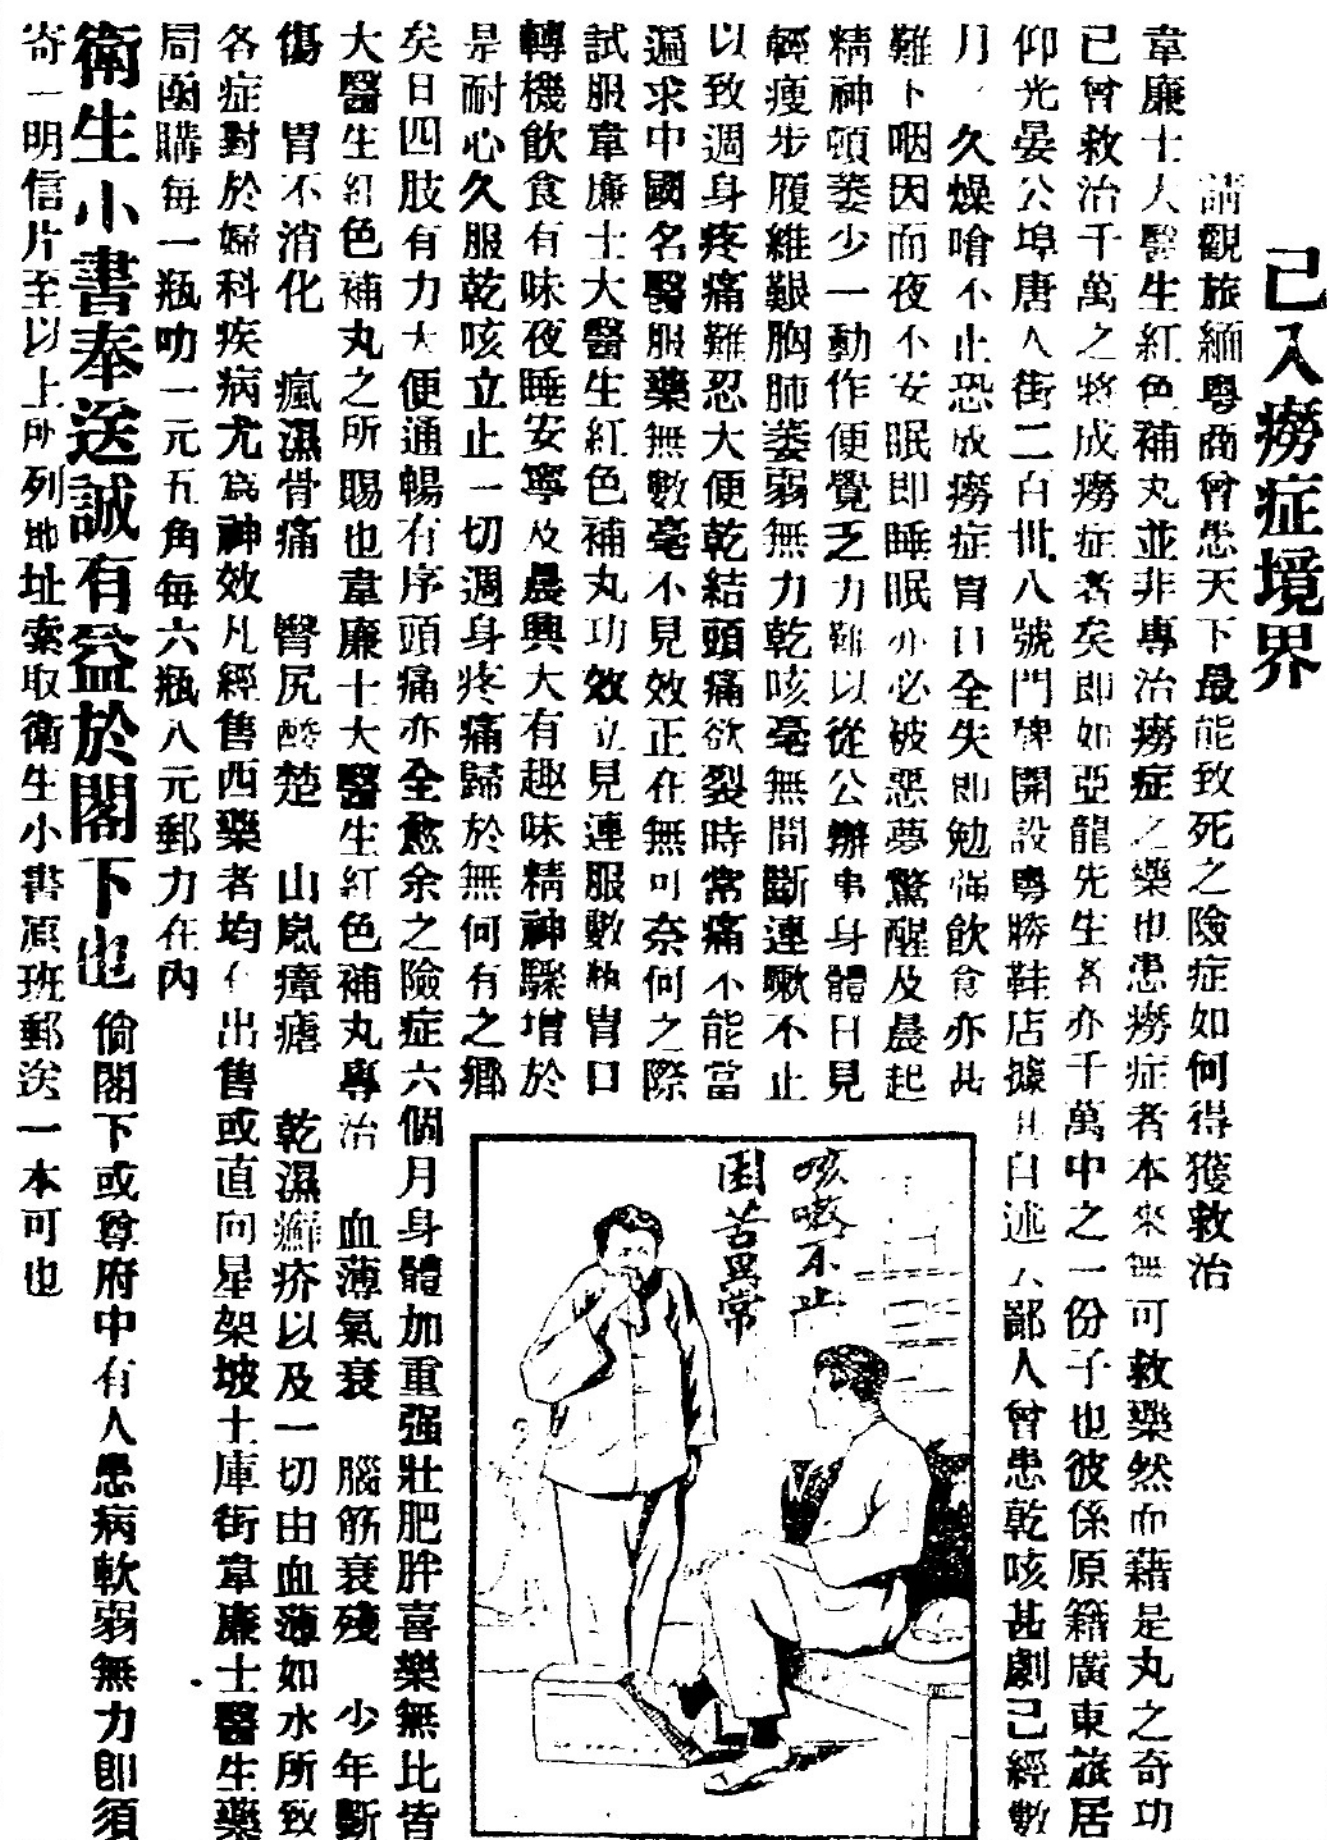 已入癆症境界
請觀旅緬粵商曾患天下最能致死之險症如何得獲救治
韋廉士大醫生紅色補丸並非專治癆症之藥也患癆症者本來無可救藥然而藉是丸之奇功
已曾救治千萬之將成癆症者矣即如亞龍先生者亦千萬中之一份子也彼係原籍廣東旅居
仰光晏公埠唐人街二百卅八號門牌開設粵勝鞋店據其自述云鄙人曾患乾咳甚劇已經數
月久燥嗆不止恐成癆症胃口全失即勉强飲食亦甚
難下咽因而夜不安眠即睡眠亦必被惡夢驚醒及晨起
精神頓萎少一動作便覺乏力難以從公辦事身體日見
輕瘦步履維艱胸肺萎弱無力乾咳毫無間斷連嗽不止
以致週身疼痛難忍大便乾結頭痛欲裂時常痛不能當
遍求中國名醫服藥無數毫不見效正在無可奈何之際
試服韋廉士大醫生紅色補丸功效立見連服數瓶胃口
轉機飲食有味夜睡安寧及晨興大有趣味精神驟增於
是耐心久服乾咳立止一切週身疼痛歸於無何有之鄉
矣日四肢有力大便通暢有序頭痛亦全愈余之險症六個月身體加重强壯肥胖喜樂無比皆
大醫生紅色補丸之所賜也韋廉士大醫生紅色補丸專治 血薄氣衰 腦筋衰殘 少年斷
傷 胃不消化 瘋濕骨痛 臀尻酸楚 山嵐瘴瘧 乾濕癬疥以及一切由血薄如水所致
各症對於婦科疾病尤爲神效凡經售西藥者均有出售或直向星架坡土庫街韋廉士醫生藥
局函購每一瓶叻一元五角每六瓶八元郵力在內
衛生小書奉送誠有益於閣下也 倘閣下或尊府中有人患病軟弱無力即須
寄一明信片至以上所列地址索取衛生小書原班郵送一本可也
咳嗽不止
困苦異常